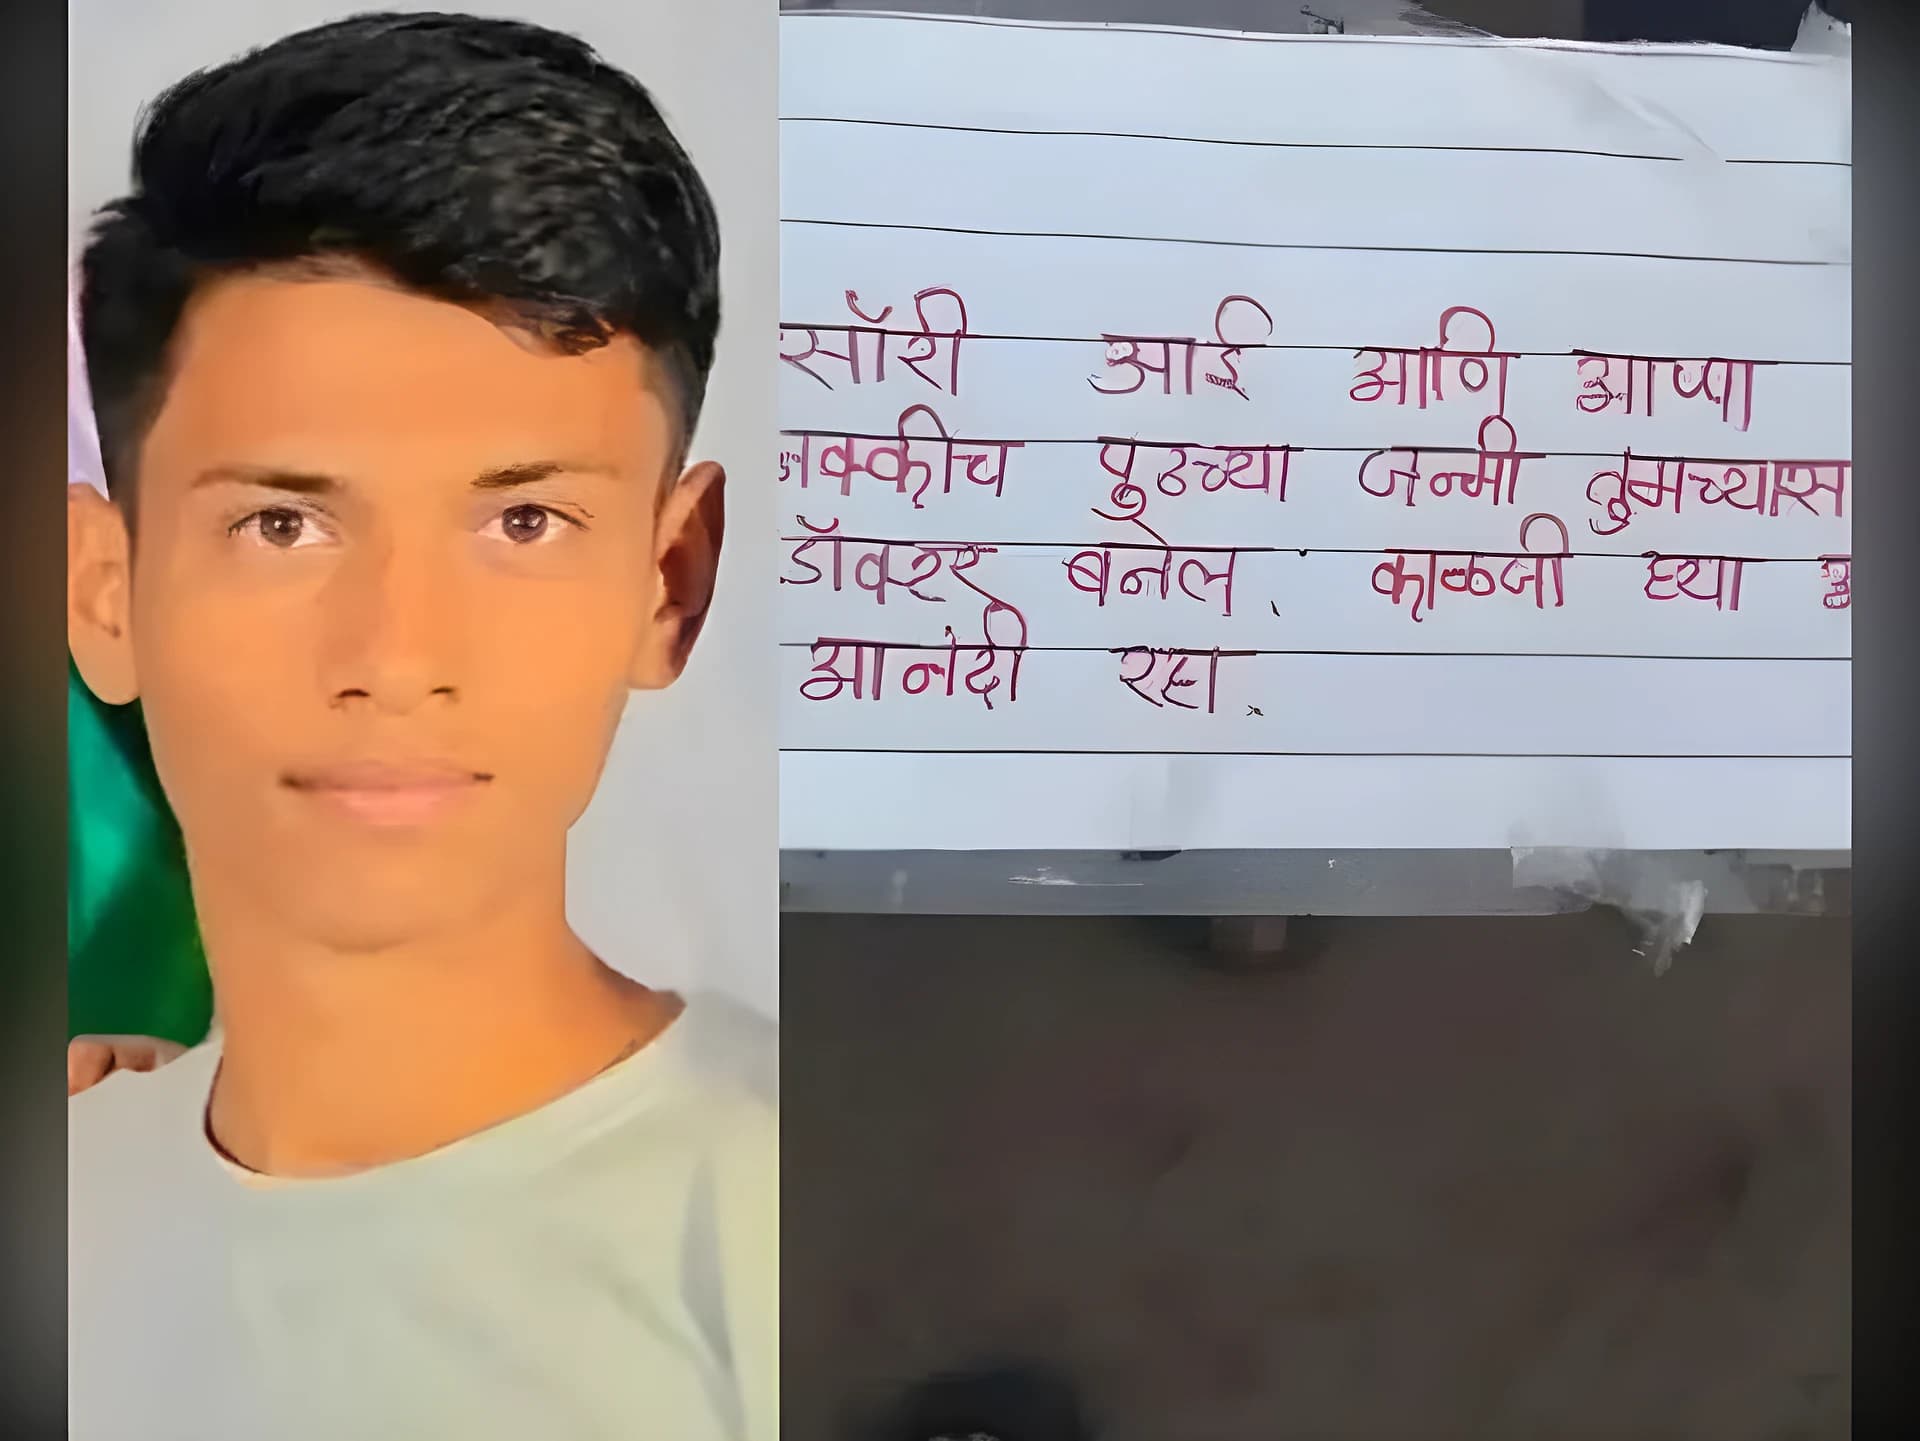 सॉरी आई आणि आप्पा
नक्कीच पुढच्या जन्मी तुमच्यास
डॉक्टर बनेल. काळजी घ्या
आनंदी रहा.